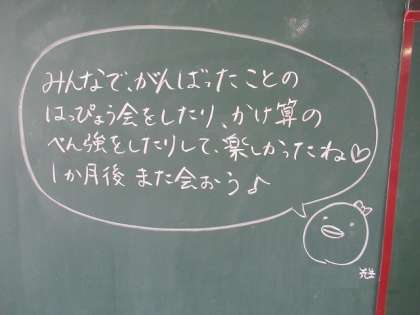 みんなで、がんばったことの
はっぴょう会をしたり、かけ算の
べん強をしたりして、楽しかったね♡
1か月後 また会おう♪
先生